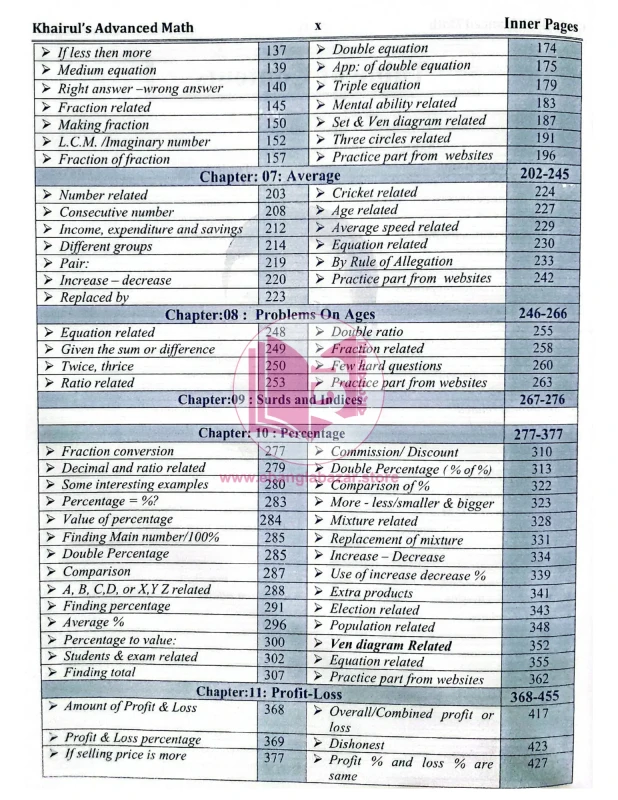 Khairul's Advanced Math x Inner Pages
➢ If less then more 137 ➢ Double equation 174
➢ Medium equation 139 ➢ App: of double equation 175
➢ Right answer –wrong answer 140 ➢ Triple equation 179
➢ Fraction related 145 ➢ Mental ability related 183
➢ Making fraction 150 ➢ Set & Ven diagram related 187
➢ L.C.M. /Imaginary number 152 ➢ Three circles related 191
➢ Fraction of fraction 157 ➢ Practice part from websites 196
Chapter: 07: Average 202-245
➢ Number related 203 ➢ Cricket related 224
➢ Consecutive number 208 ➢ Age related 227
➢ Income, expenditure and savings 212 ➢ Average speed related 229
➢ Different groups 214 ➢ Equation related 230
➢ Pair: 219 ➢ By Rule of Allegation 233
➢ Increase – decrease 220 ➢ Practice part from websites 242
➢ Replaced by 223
Chapter:08 : Problems On Ages 246-266
➢ Equation related 248 ➢ Double ratio 255
➢ Given the sum or difference 249 ➢ Fraction related 258
➢ Twice, thrice 250 ➢ Few hard questions 260
➢ Ratio related 253 ➢ Practice part from websites 263
Chapter:09 : Surds and Indices 267-276
Chapter: 10 : Percentage 277-377
➢ Fraction conversion 277 ➢ Commission/ Discount 310
➢ Decimal and ratio related 279 ➢ Double Percentage ( % of %) 313
➢ Some interesting examples 280 ➢ Comparison of % 322
www.ebanglabazar.store
➢ Percentage = %? 283 ➢ More - less/smaller & bigger 323
➢ Value of percentage 284 ➢ Mixture related 328
➢ Finding Main number/100% 285 ➢ Replacement of mixture 331
➢ Double Percentage 285 ➢ Increase – Decrease 334
➢ Comparison 287 ➢ Use of increase decrease % 339
➢ A, B, C,D, or X,Y Z related 288 ➢ Extra products 341
➢ Finding percentage 291 ➢ Election related 343
➢ Average % 296 ➢ Population related 348
➢ Percentage to value: 300 ➢ Ven diagram Related 352
➢ Students & exam related 302 ➢ Equation related 355
➢ Finding total 307 ➢ Practice part from websites 362
Chapter:11: Profit-Loss 368-455
➢ Amount of Profit & Loss 368 ➢ Overall/Combined profit or 417
loss
➢ Profit & Loss percentage 369 ➢ Dishonest 423
➢ If selling price is more 377 ➢ Profit % and loss % are 427
same